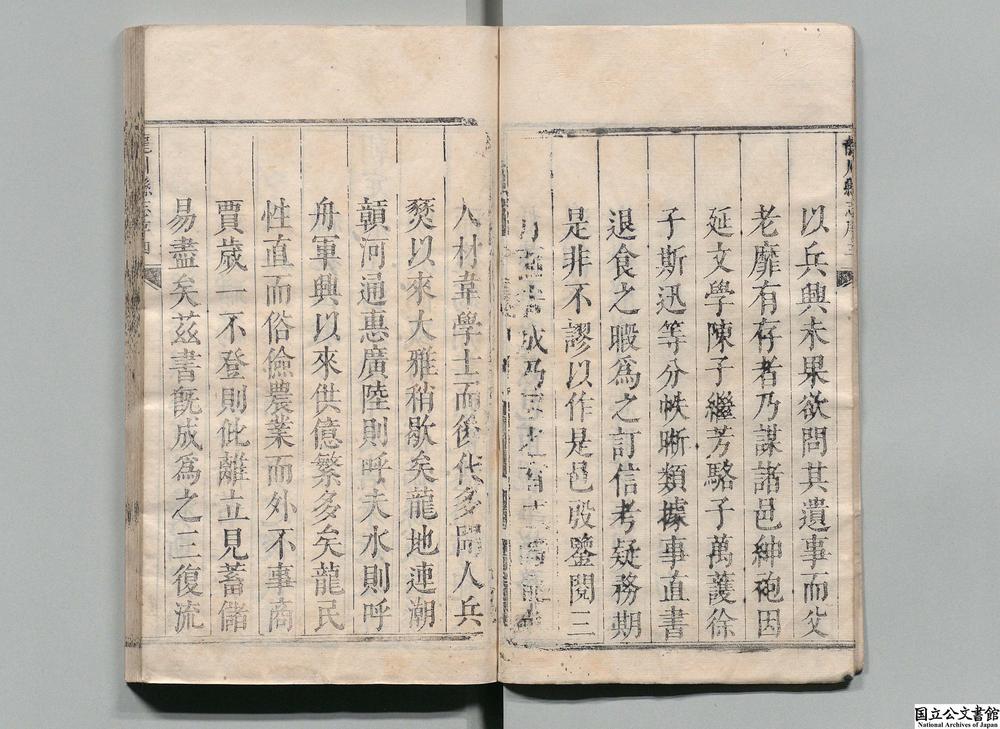 以兵興未果欲問其遺事而父
老靡有存者乃謀諸邑紳砲因
延文學陳子繼芳駱子萬護徐
子斯迅等分帙晰類據事直書
退食之暇為之訂信考疑務期
是非不謬以作是邑殷鑒閱三
月 成乃
人材韋學士而後代多聞人兵
燹以來大雅稍歇矣龍地連潮
贛河通惠廣陸則呼夫水則呼
舟軍興以來供億繁多矣龍民
性直而俗儉農業而外不事商
賈歲一不登則仳離立見蓄儲
易盡矣茲書旣成為之三復流
龍川縣志序
国立公文書館
National Archives of Japan